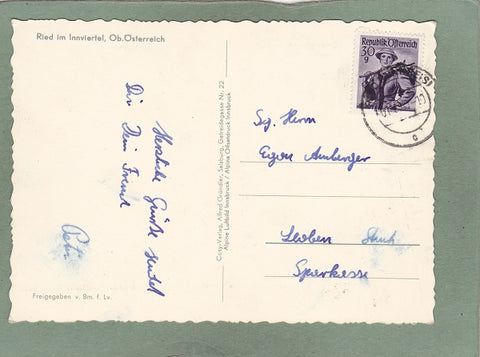 Ried im Innviertel, Ob.Österreich
Herzliche Grüße sendet
Dir Dein Freund
Freigegeben v. Bm. f. Lv.
Cosy-Verlag, Alfred Gründler, Salzburg, Getreidegasse Nr. 22
Alpine Luftbild Innsbruck / Alpine Offsetdruck Innsbruck
Republik Österreich
30
g
Sg. Herrn
Eugen Amberger
Leoben
Sparkasse